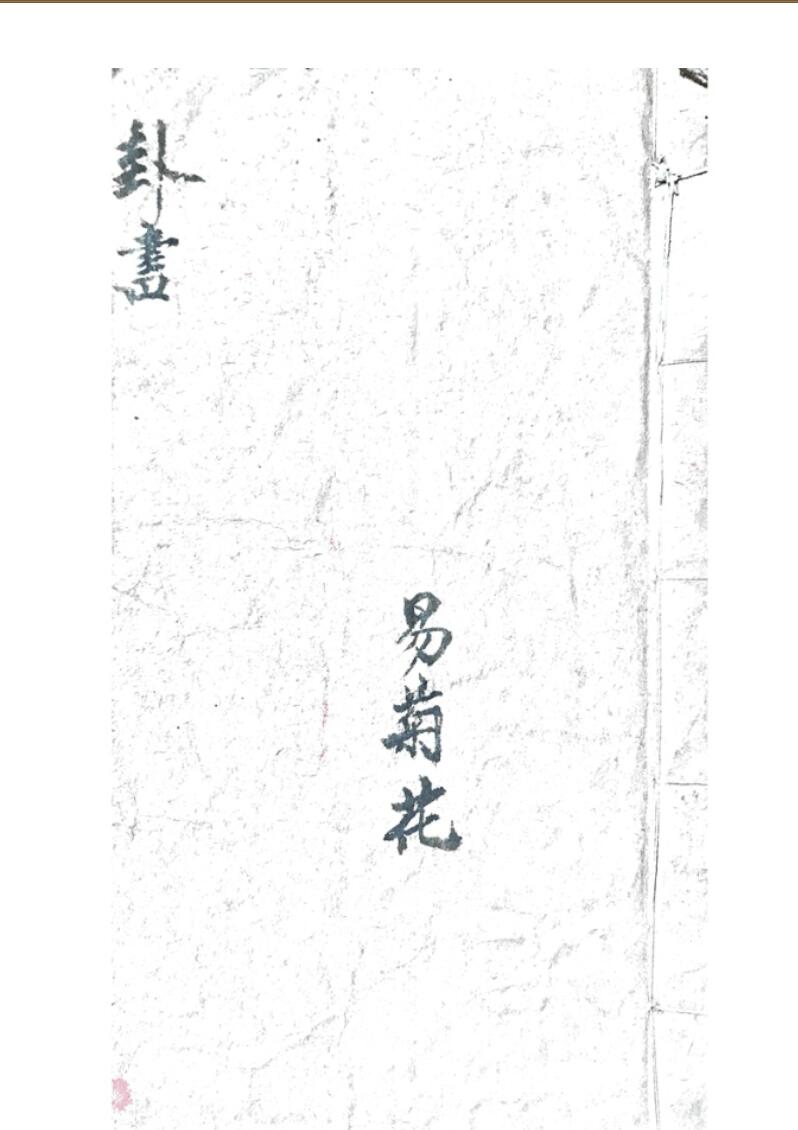 易菊花
卦書